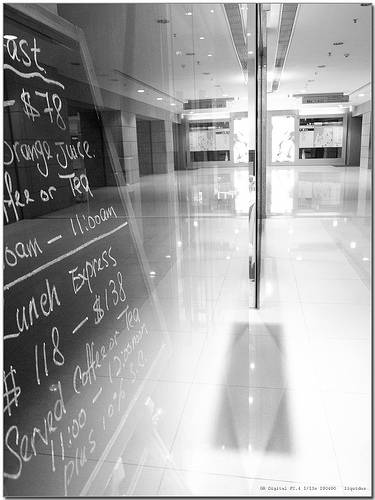 ast
- $78
Orange Juice.
ffee or Tea
0am - 11:00am
Lunch Express
$118 - $138
Served Coffee or Tea
11:00 - 12:00noon
plus 10% s.c.
GR Digital F2.4 1/13s ISO400 liquidus